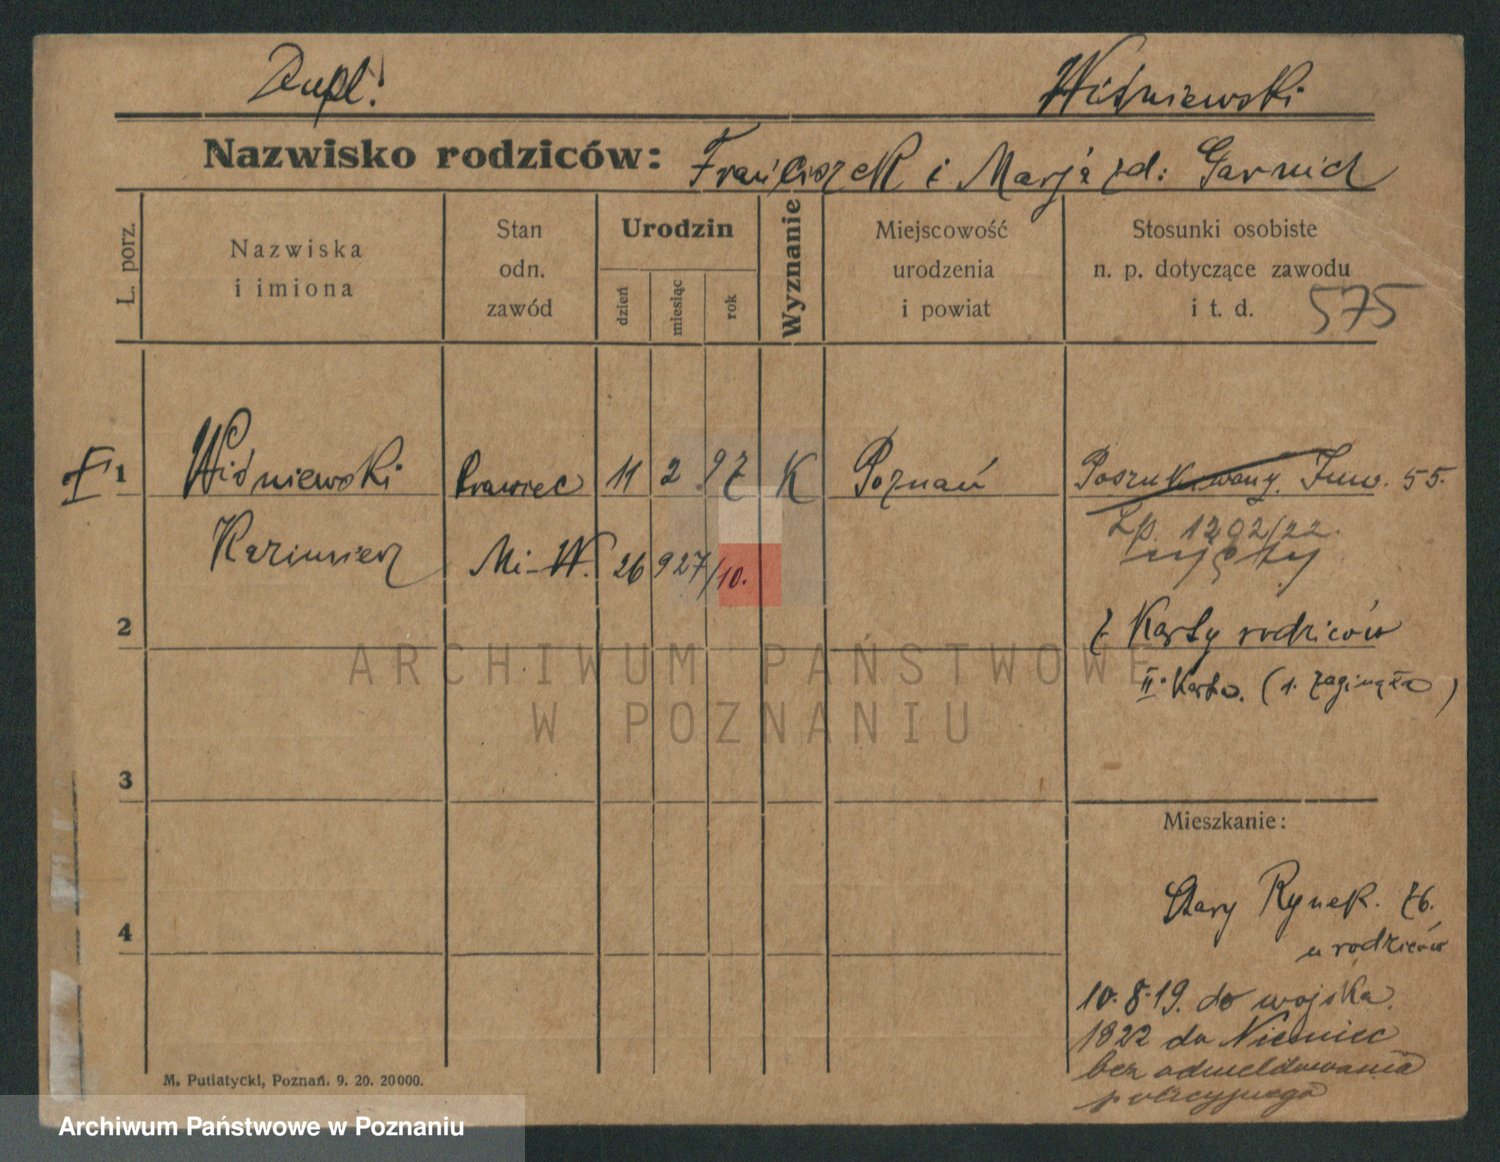 Dupl!
Wiśniewski
Nazwisko rodziców: Franciszek i Marja zd: Garnich
L. porz.
Nazwiska
i imiona
Stan
odn.
zawód
Urodzin
dzień
miesiąc
rok
Wyznanie
Miejscowość
urodzenia
i powiat
Stosunki osobiste
n. p. dotyczące zawodu
i t. d. 575
1 Wiśniewski Krawiec 11 2 97 K Poznań Poszukiwany. Inw. 55.
Lp. 1202/22.
Kazimierz Mi-W. 26 927/10.
2 z Karty rodziców
II. Karta. (1. zaginęła)
3
Mieszkanie:
Stary Rynek. 76.
4 u rodziców
10.8.19. do wojska
1922 do Niemiec
bez odmeldowania
policyjnego
M. Putiatycki, Poznań. 9. 20. 20000.
ARCHIWUM PAŃSTWOWE
W POZNANIU
Archiwum Państwowe w Poznaniu